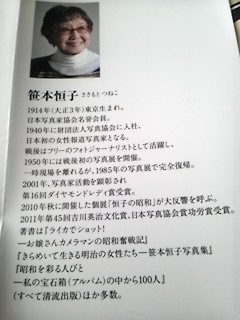 笹本恒子 ささもとつねこ
1914年(大正3年)東京生まれ。
日本写真家協会名誉会員。
1940年に財団法人写真協会に入社、
日本初の女性報道写真家となる。
戦後はフリーのフォトジャーナリストとして活躍し、
1950年には戦後初の写真展を開催。
一時現場を離れるが、1985年の写真展で完全復帰。
2001年、写真家活動を顕彰され
第16回ダイヤモンドレディ賞受賞。
2010年秋に開催した個展「恒子の昭和」が大反響を呼ぶ。
2011年第45回吉川英治文化賞、日本写真協会賞功労賞受賞。
著書は『ライカでショット!
―お嬢さんカメラマンの昭和奮戦記』
『きらめいて生きる明治の女性たち―笹本恒子写真集』
『昭和を彩る人びと
―私の宝石箱(アルバム)の中から100人』
(すべて清流出版)ほか多数。